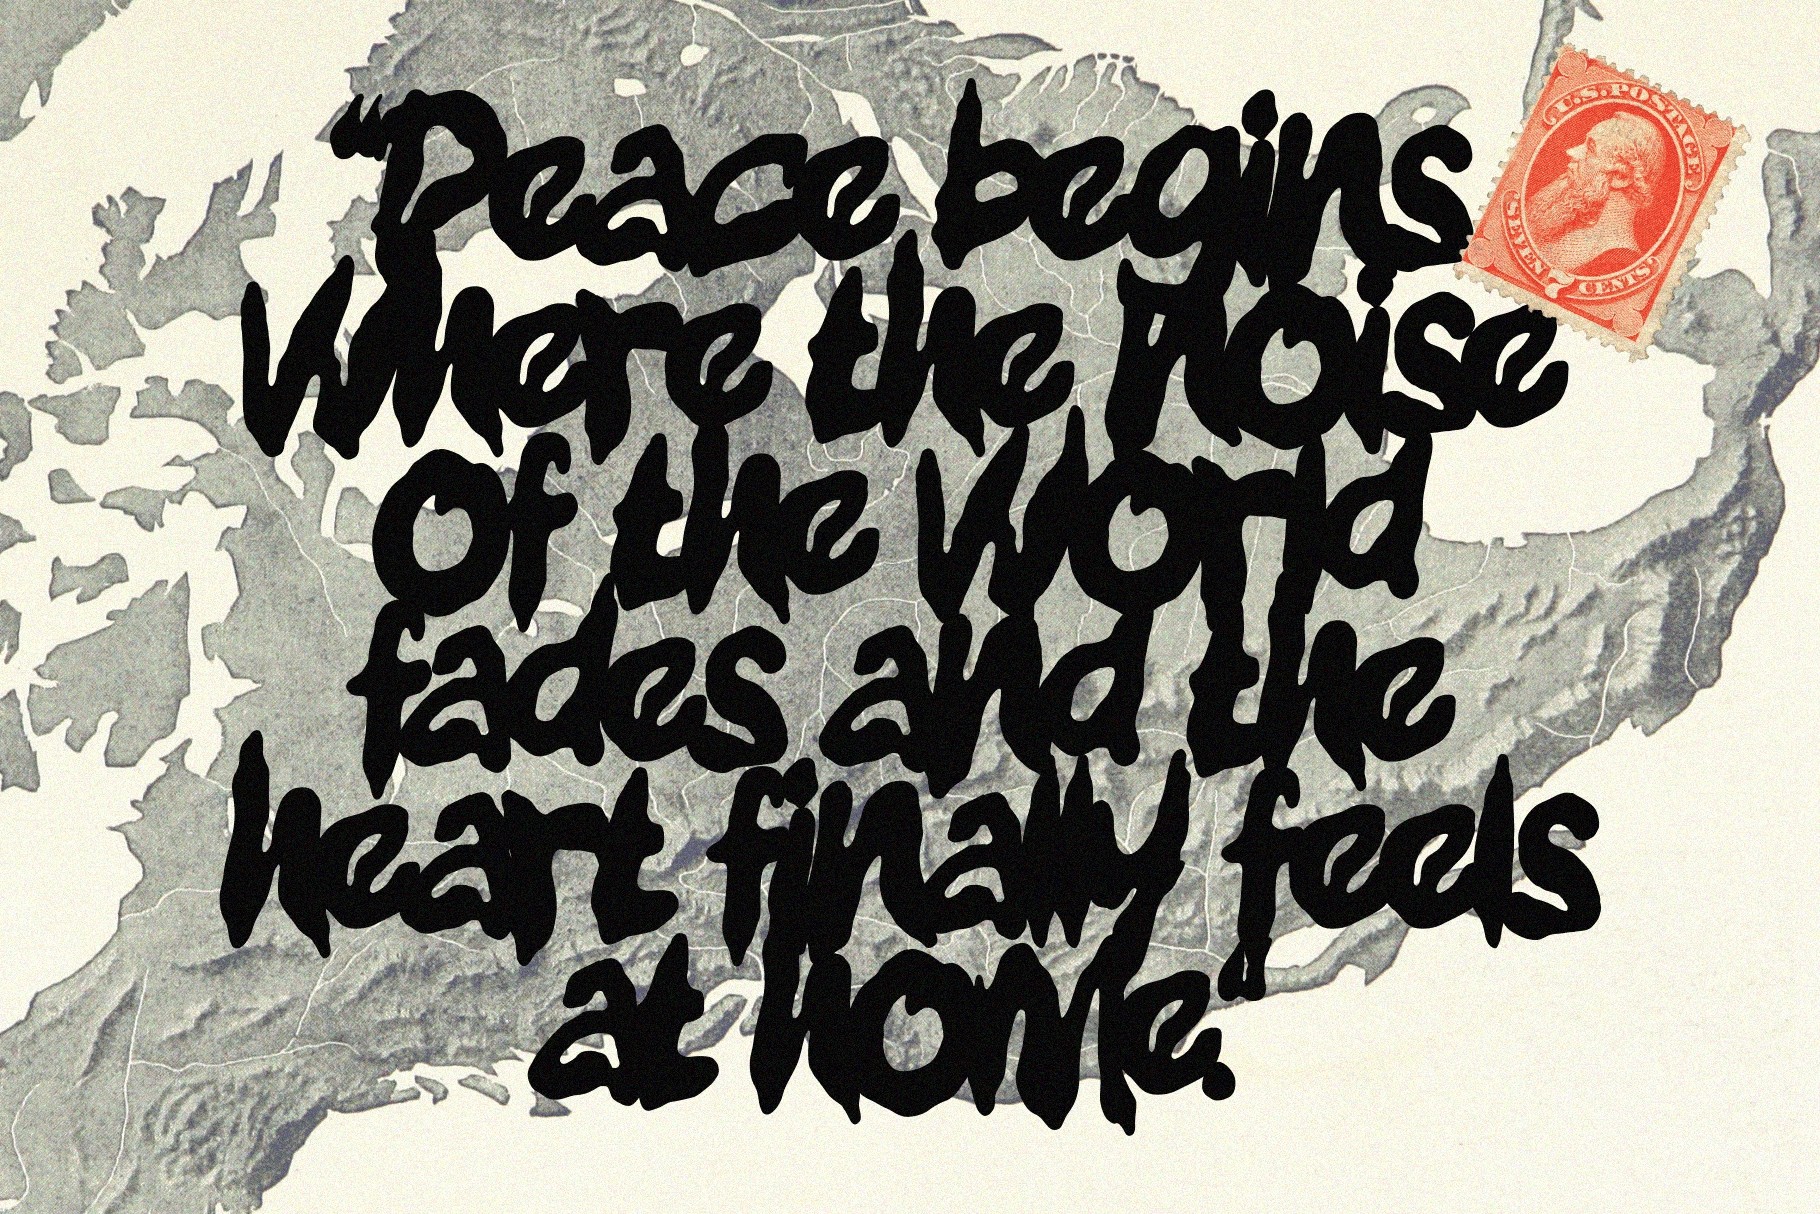 “Peace begins
where the noise
of the world
fades and the
heart finally feels
at home.“
U.S. POSTAGE
SEVEN 7 CENTS